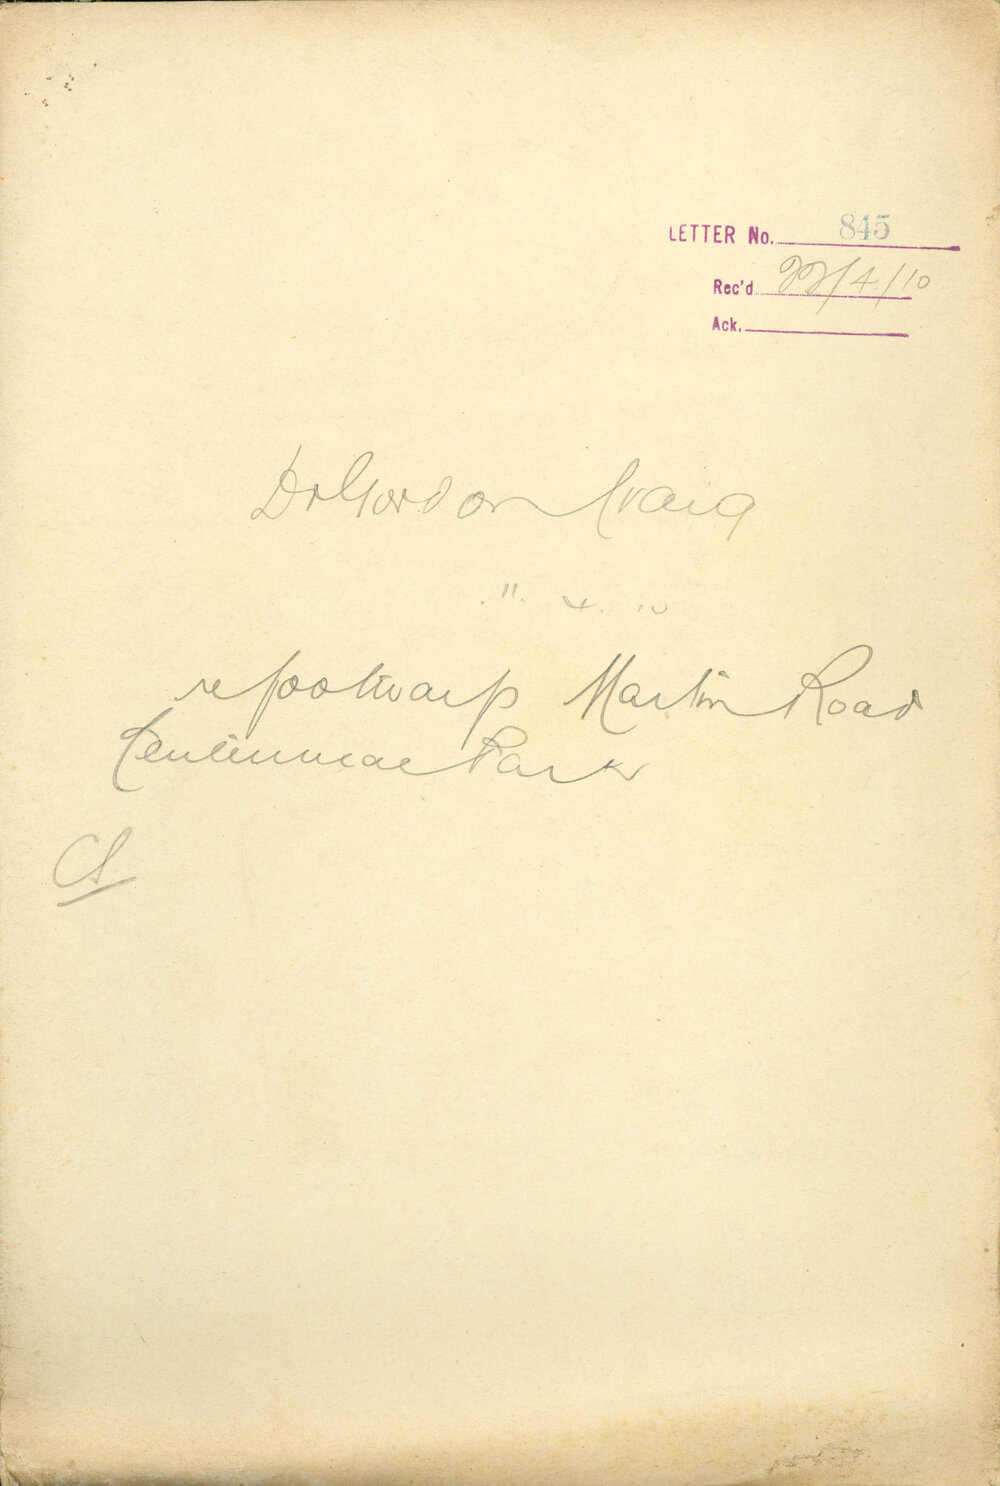 LETTER No. 845
Rec'd 22/4/10
Ack.
Dr Gordon Craig
". 4. 10
re footwarp Martin Road
Centennial Park